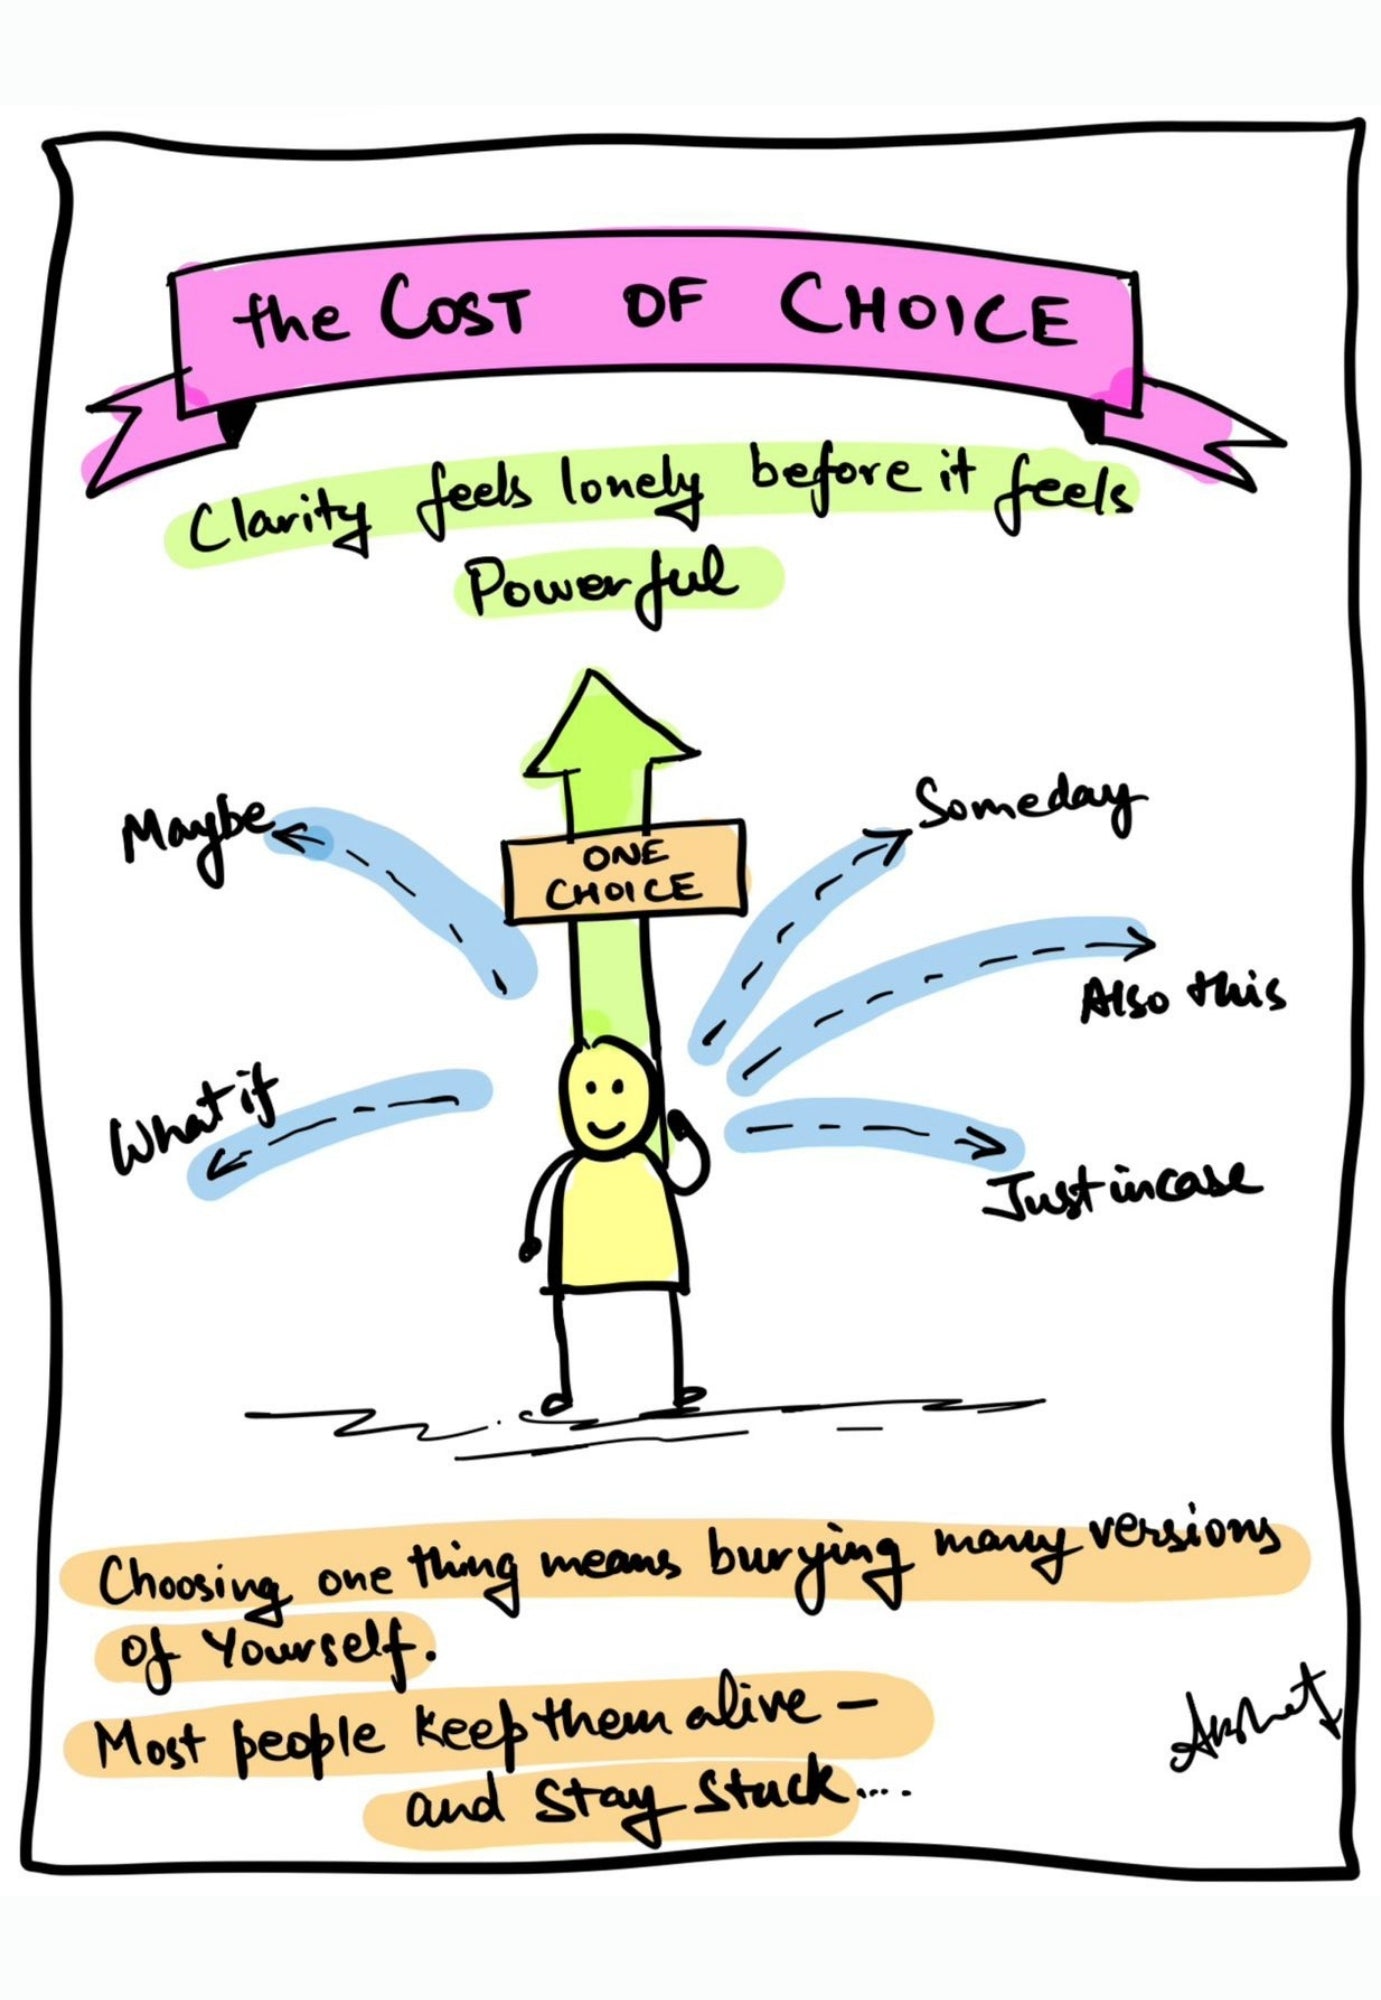 the COST OF CHOICE
Clarity feels lonely before it feels
Powerful
Maybe
Someday
ONE
CHOICE
Also this
What if
Just incase
Choosing one thing means burying many versions
of Yourself.
Most people keep them alive –
and stay stuck....